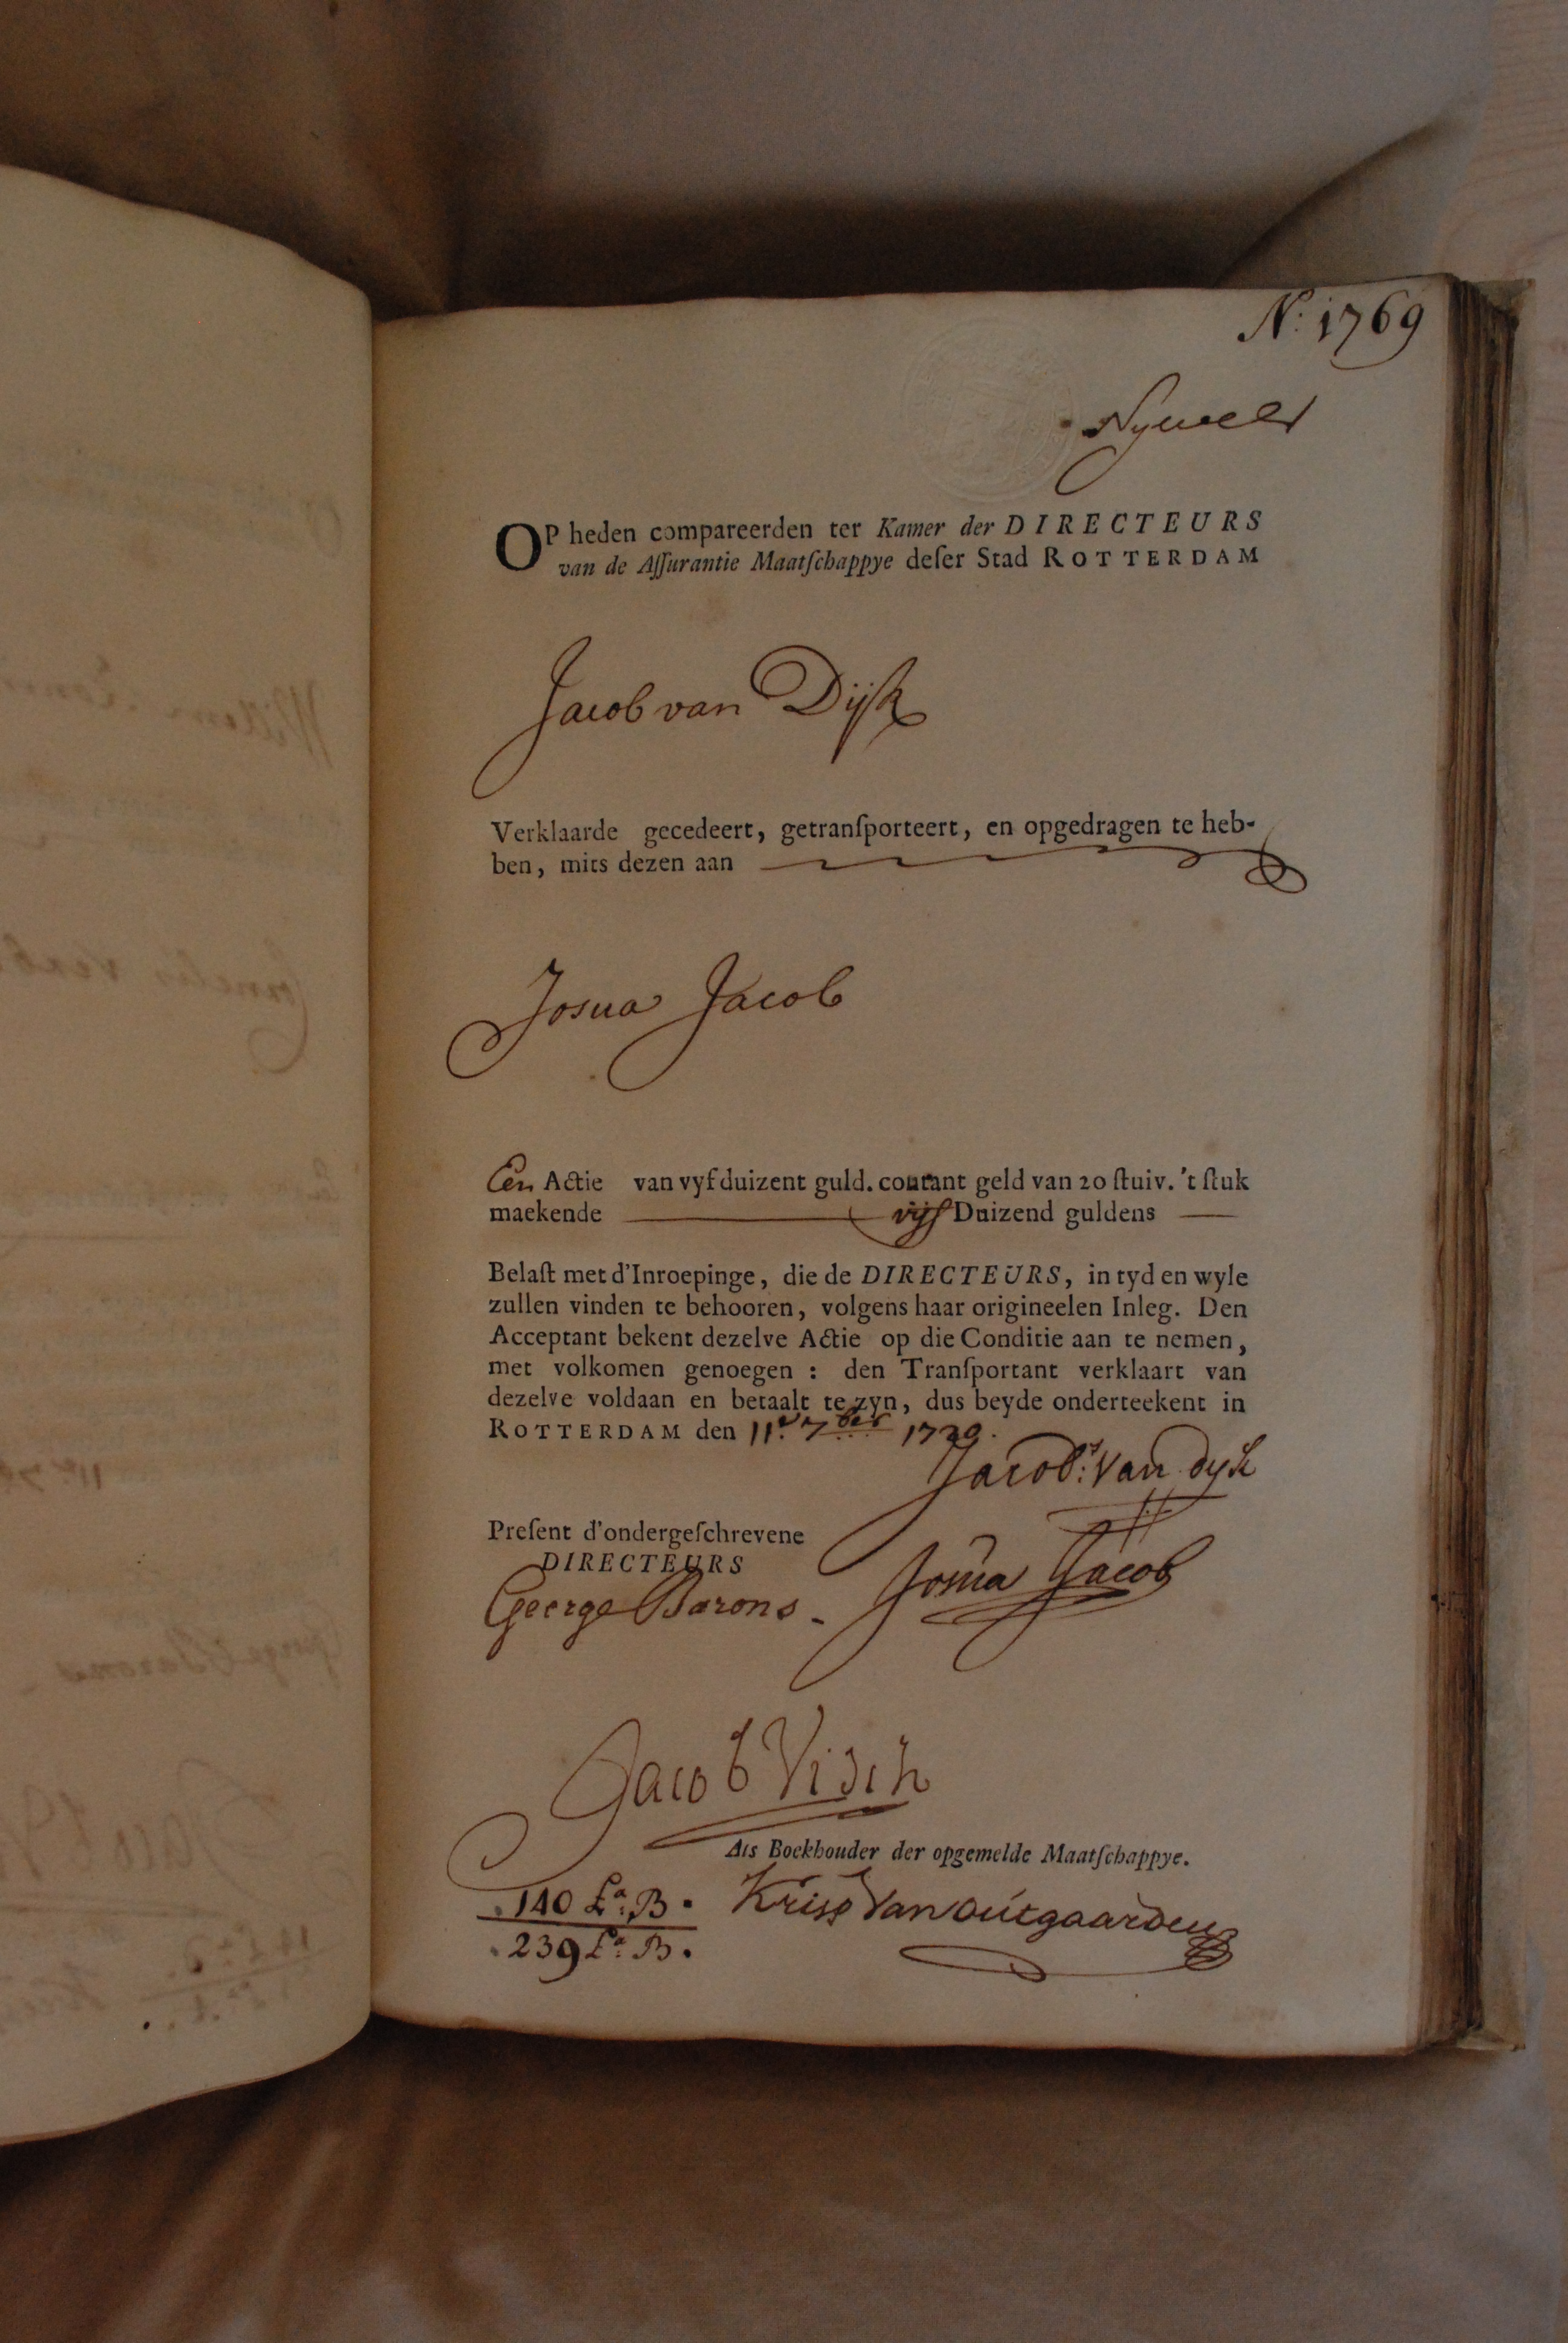 N.º 1769
Nyvelt
OP heden compareerden ter Kamer der DIRECTEURS
van de Aſſurantie Maatſchappye deſer Stad ROTTERDAM
Jacob van Dijk
Verklaarde gecedeert, getranſporteert, en opgedragen te heb-
ben, mits dezen aan
Josua Jacob
Een Actie van vyf duizent guld. courant geld van 20 ſtuiv. 't ſtuk
maekende vijf Duizend guldens
Belaſt met d'Inroepinge, die de DIRECTEURS, in tyd en wyle
zullen vinden te behooren, volgens haar origineelen Inleg. Den
Acceptant bekent dezelve Actie op die Conditie aan te nemen,
met volkomen genoegen : den Tranſportant verklaart van
dezelve voldaan en betaalt te zyn, dus beyde onderteekent in
ROTTERDAM den 11.e 7ber
Jacob: van dyk
Preſent d'ondergeſchrevene
DIRECTEURS
George Barons
Josua Jacob
Jacob Visch
Als Boekhouder der opgemelde Maatſchappye.
140 La: B.
Kriss van outgaarden
239 La: B.